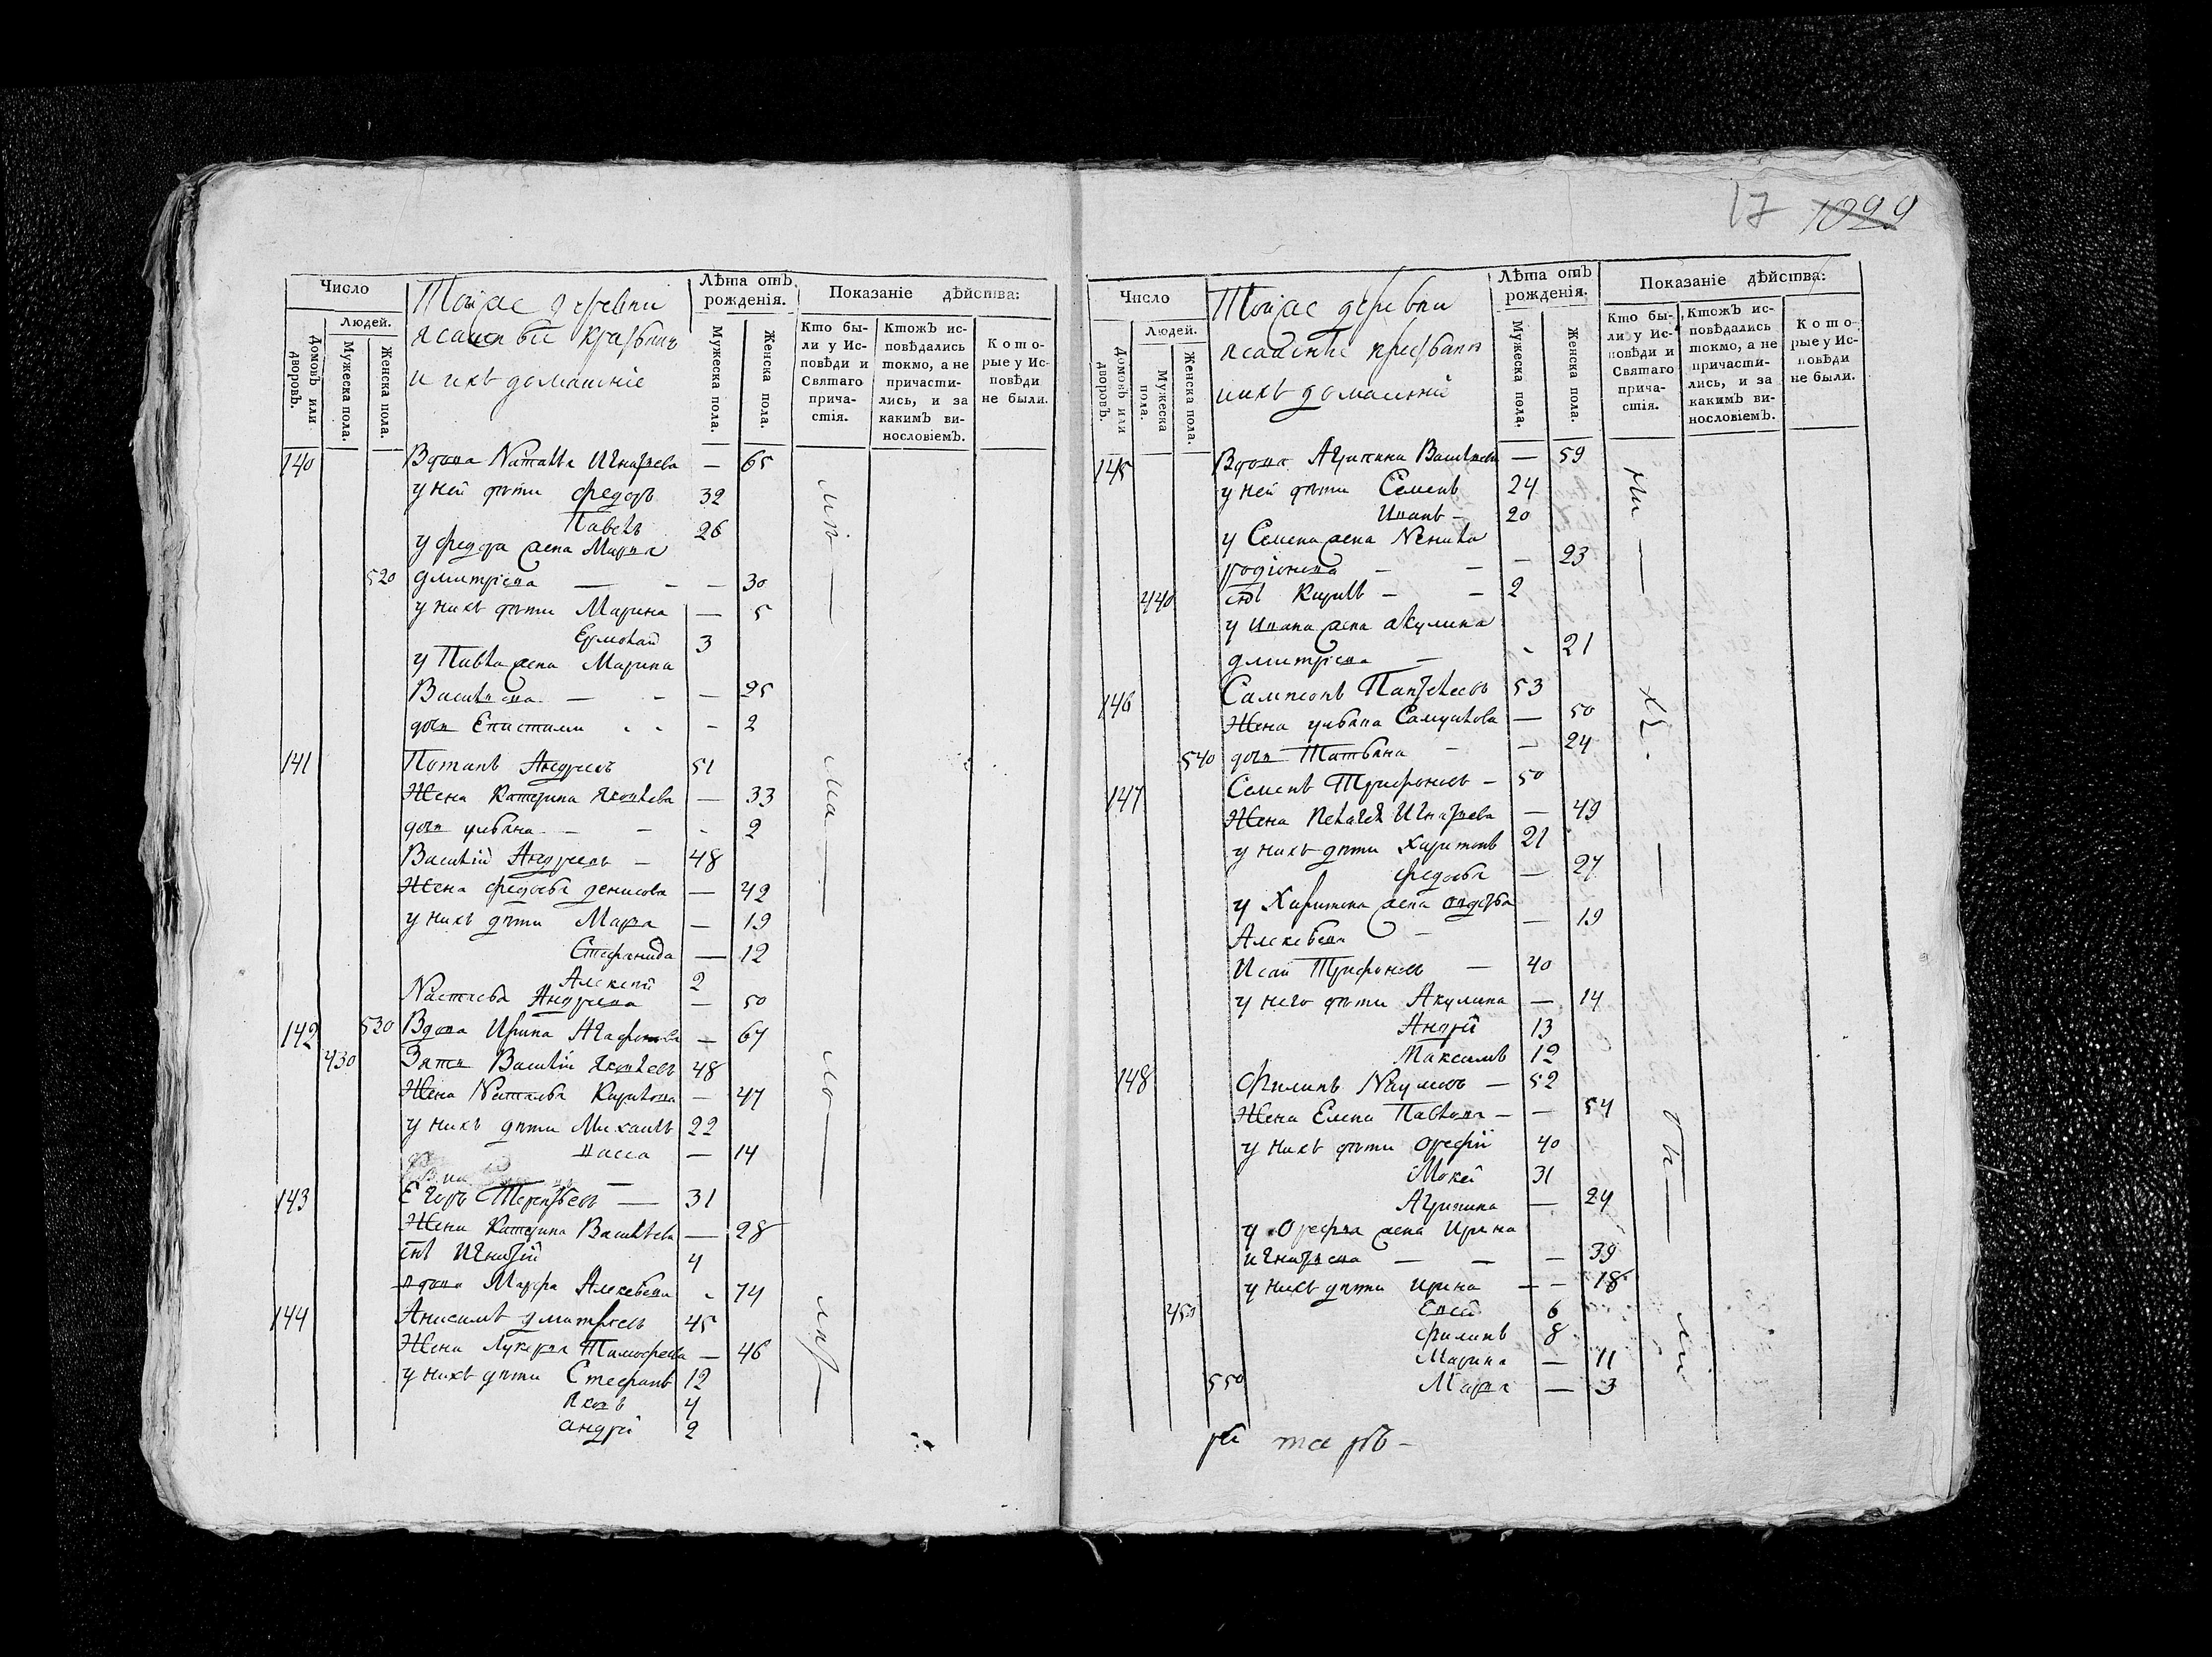 17 1029 9
Число
Людей.
Домовъ или дворовъ.
Мужеска пола.
Женска пола.
Тойже деревни
ясашные
и ихъ домашніе
Лѣта отъ рожденія.
Мужеска пола.
Женска пола.
Показаніе дѣйства:
Кто были у Исповѣди и Святаго причастія.
Ктожъ исповѣдались токмо, а не причастились, и за какимъ винословіемъ.
Которые у Исповѣди не были.
140 Вдова Наталья Игнатьева — 65
у ней дѣти Федоръ 32
Павелъ 26
у Федора жена Марья
520 Дмитріева — — — 30
у нихъ дѣти Марина — 5
Ермолай 3
у Павла жена Марина
Васильева — — — 25
дочь — 2
141 Потапъ Андреевъ 51
Жена Катерина Яковлева — 33
дочь Ульяна — — — 2
Василій Андреевъ — 48
Жена Федосья Денисова — 42
у нихъ дѣти Марья — 19
Стефанида — 12
Алексѣй 2
Настасья Андреева — 50
142 530 Вдова Ирина Агафонова — 67
430 Зять Василій Яковлевъ 48
Жена Наталья Кирилова — 47
у нихъ дѣти Михаилъ 22
— 14
143 Егоръ Терентьевъ — 31
Жена Катерина Васильева — 28
сынъ Игнатій 4
вдова Марфа Алексѣева - 74
144 Анисимъ Дмитріевъ 45
Жена Лукерья Тимофеева — 46
у нихъ дѣти Стефанъ 12
Яковъ 4
Андрей 2
Число
Людей.
Домовъ или дворовъ.
Мужеска пола.
Женска пола.
Тойже деревни
ясашные
и ихъ домашніе
Лѣта отъ рожденія.
Мужеска пола.
Женска пола.
Показаніе дѣйства:
Кто были у Исповѣди и Святаго причастія.
Ктожъ исповѣдались токмо, а не причастились, и за какимъ винословіемъ.
Которые у Исповѣди не были.
145 Вдова Агрипина Васильева — 59
у ней дѣти Семенъ 24
Иванъ — 20
у Семена жена Ненила
Родіонова — — — 23
440 сынъ Кирилъ — — 2
у Ивана жена Акулина
Дмитріева — - 21
146 Сампсонъ Пантелеевъ 53
Жена Ульяна Самуилова — 50
540 дочь Татьяна — — 24
147 Семенъ Трифоновъ — 50
Жена Пелагея Игнатьева — 49
у нихъ дѣти Харитонъ 21
Федосья — 27
у Харитона жена Федосья
Алексѣева — — 19
Исай Трифоновъ — 40
у него дѣти Акулина — 14
Андрей 13
Максимъ 12
148 Филипъ Наумовъ — 52
Жена Елена Павлова — — 54
у нихъ дѣти Орефій 40
Мокей 31
Агрипина — 24
у Орефья жена Ирина
Игнатьева — — — 39
у нихъ дѣти Ирина — — 18
450 Евсей 6
Филипъ 8
Марина — 11
550 Марья — 3